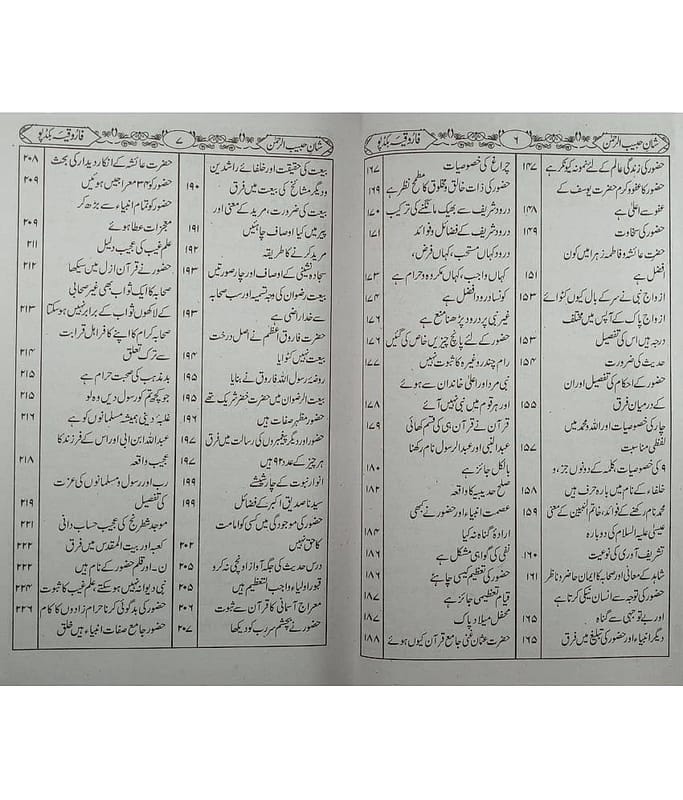 شان حبیب الرحمٰن
۶
فاروقیہ بکڈپو
حضور کی زندگی عالم کے لئے نمونہ کیونکر ہے ۱۴۷
حضور کا عفو و کرم حضرت یوسف کے
عفو سے اعلیٰ ہے ۱۴۸
حضور کی سخاوت ۱۴۹
حضرت عائشہ و فاطمہ زہرا میں کون
افضل ہے ۱۵۱
ازواج نبی نے سر کے بال کیوں کٹوائے ۱۵۳
ازواج پاک کے آپس میں مختلف
درجہ ہیں اس کی تفصیل ۱۵۳
حدیث کی ضرورت ۱۵۴
حضور کے احکام کی تفصیل اور ان
کے درمیان فرق ۱۵۵
چار کی خصوصیات اور اللہ و محمد میں
لفظی مناسبت ۱۵۷
۹ کی خصوصیات، کلمہ کے دونوں جزء، و
خلفاء کے نام میں بارہ حرف ہیں ۱۵۸
محمد نام رکھنے کے فوائد، خاتم النبیین کے معنی ۱۵۹
عیسیٰ علیہ السلام کی دوبارہ
تشریف آوری کی نوعیت ۱۶۰
شاہد کے معانی اور صحابہ کا ایمان حاضر و ناظر ۱۶۱
حضور کی توجہ سے انسان نیکی کرتا ہے
اور بے توجہی سے گناہ ۱۶۵
دیگر انبیاء اور حضور کی تبلیغ میں فرق ۱۶۵
چراغ کی خصوصیات ۱۶۷
حضور کی ذات خالق و مخلوق کا مطمح نظر ہے ۱۶۹
درود شریف سے بھیک مانگنے کی ترکیب ۱۷۰
درود شریف کے فضائل و فوائد ۱۷۱
درود کہاں مستحب، کہاں فرض،
کہاں واجب، کہاں مکروہ و حرام ہے ۱۷۳
کونسا درود افضل ہے ۱۷۴
غیر نبی پر درود پڑھنا منع ہے ۱۷۶
حضور کے لئے پانچ چیزیں خاص کی گئیں ۱۷۶
رام چندر وغیرہ کا ثبوت نہیں ۱۷۷
نبی مرد اور اعلیٰ خاندان سے ہوئے
اور ہر قوم میں نبی نہیں آئے ۱۷۸
قرآن نے قرآن ہی کی قسم کھائی ۱۷۹
عبدالنبی اور عبدالرسول نام رکھنا
بالکل جائز ہے ۱۸۰
صلح حدیبیہ کا واقعہ ۱۸۲
عصمت انبیاء اور حضور نے کبھی
ارادۂ گناہ نہ کیا ۱۸۴
نفی کی گواہی مشکل ہے ۱۸۶
حضور کی تعظیم کیسی چاہئے ۱۸۶
قیام تعظیمی جائز ہے ۱۸۷
محفل میلاد پاک ۱۸۷
حضرت عثمان غنی جامع قرآن کیوں ہوئے ۱۸۸
شان حبیب الرحمٰن
۷
فاروقیہ بکڈپو
بیعت کی حقیقت اور خلفائے راشدین
و دیگر مشائخ کی بیعت میں فرق ۱۹۰
بیعت کی ضرورت، مرید کے معنی اور
پیر میں کیا اوصاف چاہئیں ۱۹۱
مرید کرنے کا طریقہ ۱۹۲
سجادہ نشینی کے اوصاف اور چار صورتیں ۱۹۳
بیعت رضوان کی وجہ تسمیہ اور سب صحابہ
سے خدا راضی ہے ۱۹۳
حضرت فاروق اعظم نے اصل درخت
بیعت نہیں کٹوایا ۱۹۴
روضۂ رسول اللہ فاروق نے بنایا ۱۹۵
بیعت الرضوان میں حضرت خضر شریک تھے ۱۹۵
حضور مظہر صفات ہیں ۱۹۶
حضور اور دیگر پیغمبروں کی رسالت میں فرق ۱۹۷
ہر چیز کے عدد ۹۲ ہیں ۱۹۷
انوار نبوت کے چار شیشے
سیدنا صدیق اکبر کے فضائل ۱۹۹
حضور کی موجودگی میں کسی کو امامت
کا حق نہیں ۲۰۲
درس حدیث کی جگہ آواز اونچی نہ کرو ۲۰۵
قبور اولیاء واجب التعظیم ہیں ۲۰۵
معراج آسمانی کا قرآن سے ثبوت ۲۰۶
حضور نے بچشم سر رب کو دیکھا ۲۰۷
حضرت عائشہ کے انکار دیدار کی بحث ۲۰۸
حضور کو ۳۴ معراجیں ہوئیں ۲۰۹
حضور کو تمام انبیاء سے بڑھ کر
معجزات عطا ہوئے ۲۰۹
علم غیب کی عجیب دلیل ۲۱۱
حضور نے قرآن ازل میں سیکھا ۲۱۲
صحابہ کا ایک ثواب بھی غیر صحابی
کے لاکھوں ثواب کے برابر نہیں ہو سکتا ۲۱۳
صحابہ کرام کا اپنے کافر اہل قرابت
سے ترک تعلق ۲۱۴
بد مذہب کی صحبت حرام ہے ۲۱۵
جو کچھ تم کو رسول دیں وہ لو ۲۱۵
غلبۂ دینی ہمیشہ مسلمانوں کو ہے ۲۱۶
عبداللہ ابن ابی اور اس کے فرزند کا
عجیب واقعہ ۲۱۸
رب اور رسول و مسلمانوں کی عزت
کی تفصیل ۲۱۹
موجد شطرنج کی عجیب حساب دانی ۲۲۱
کعبہ اور بیت المقدس میں فرق ۲۲۲
ن۔ اور قلم حضور کے نام ہیں ۲۲۲
نبی دیوانہ نہیں ہو سکتے، علم غیب کا ثبوت ۲۲۴
حضور کی بدگوئی کرنا حرام زادوں کا کام ۲۲۶
حضور جامع صفات انبیاء ہیں خلق